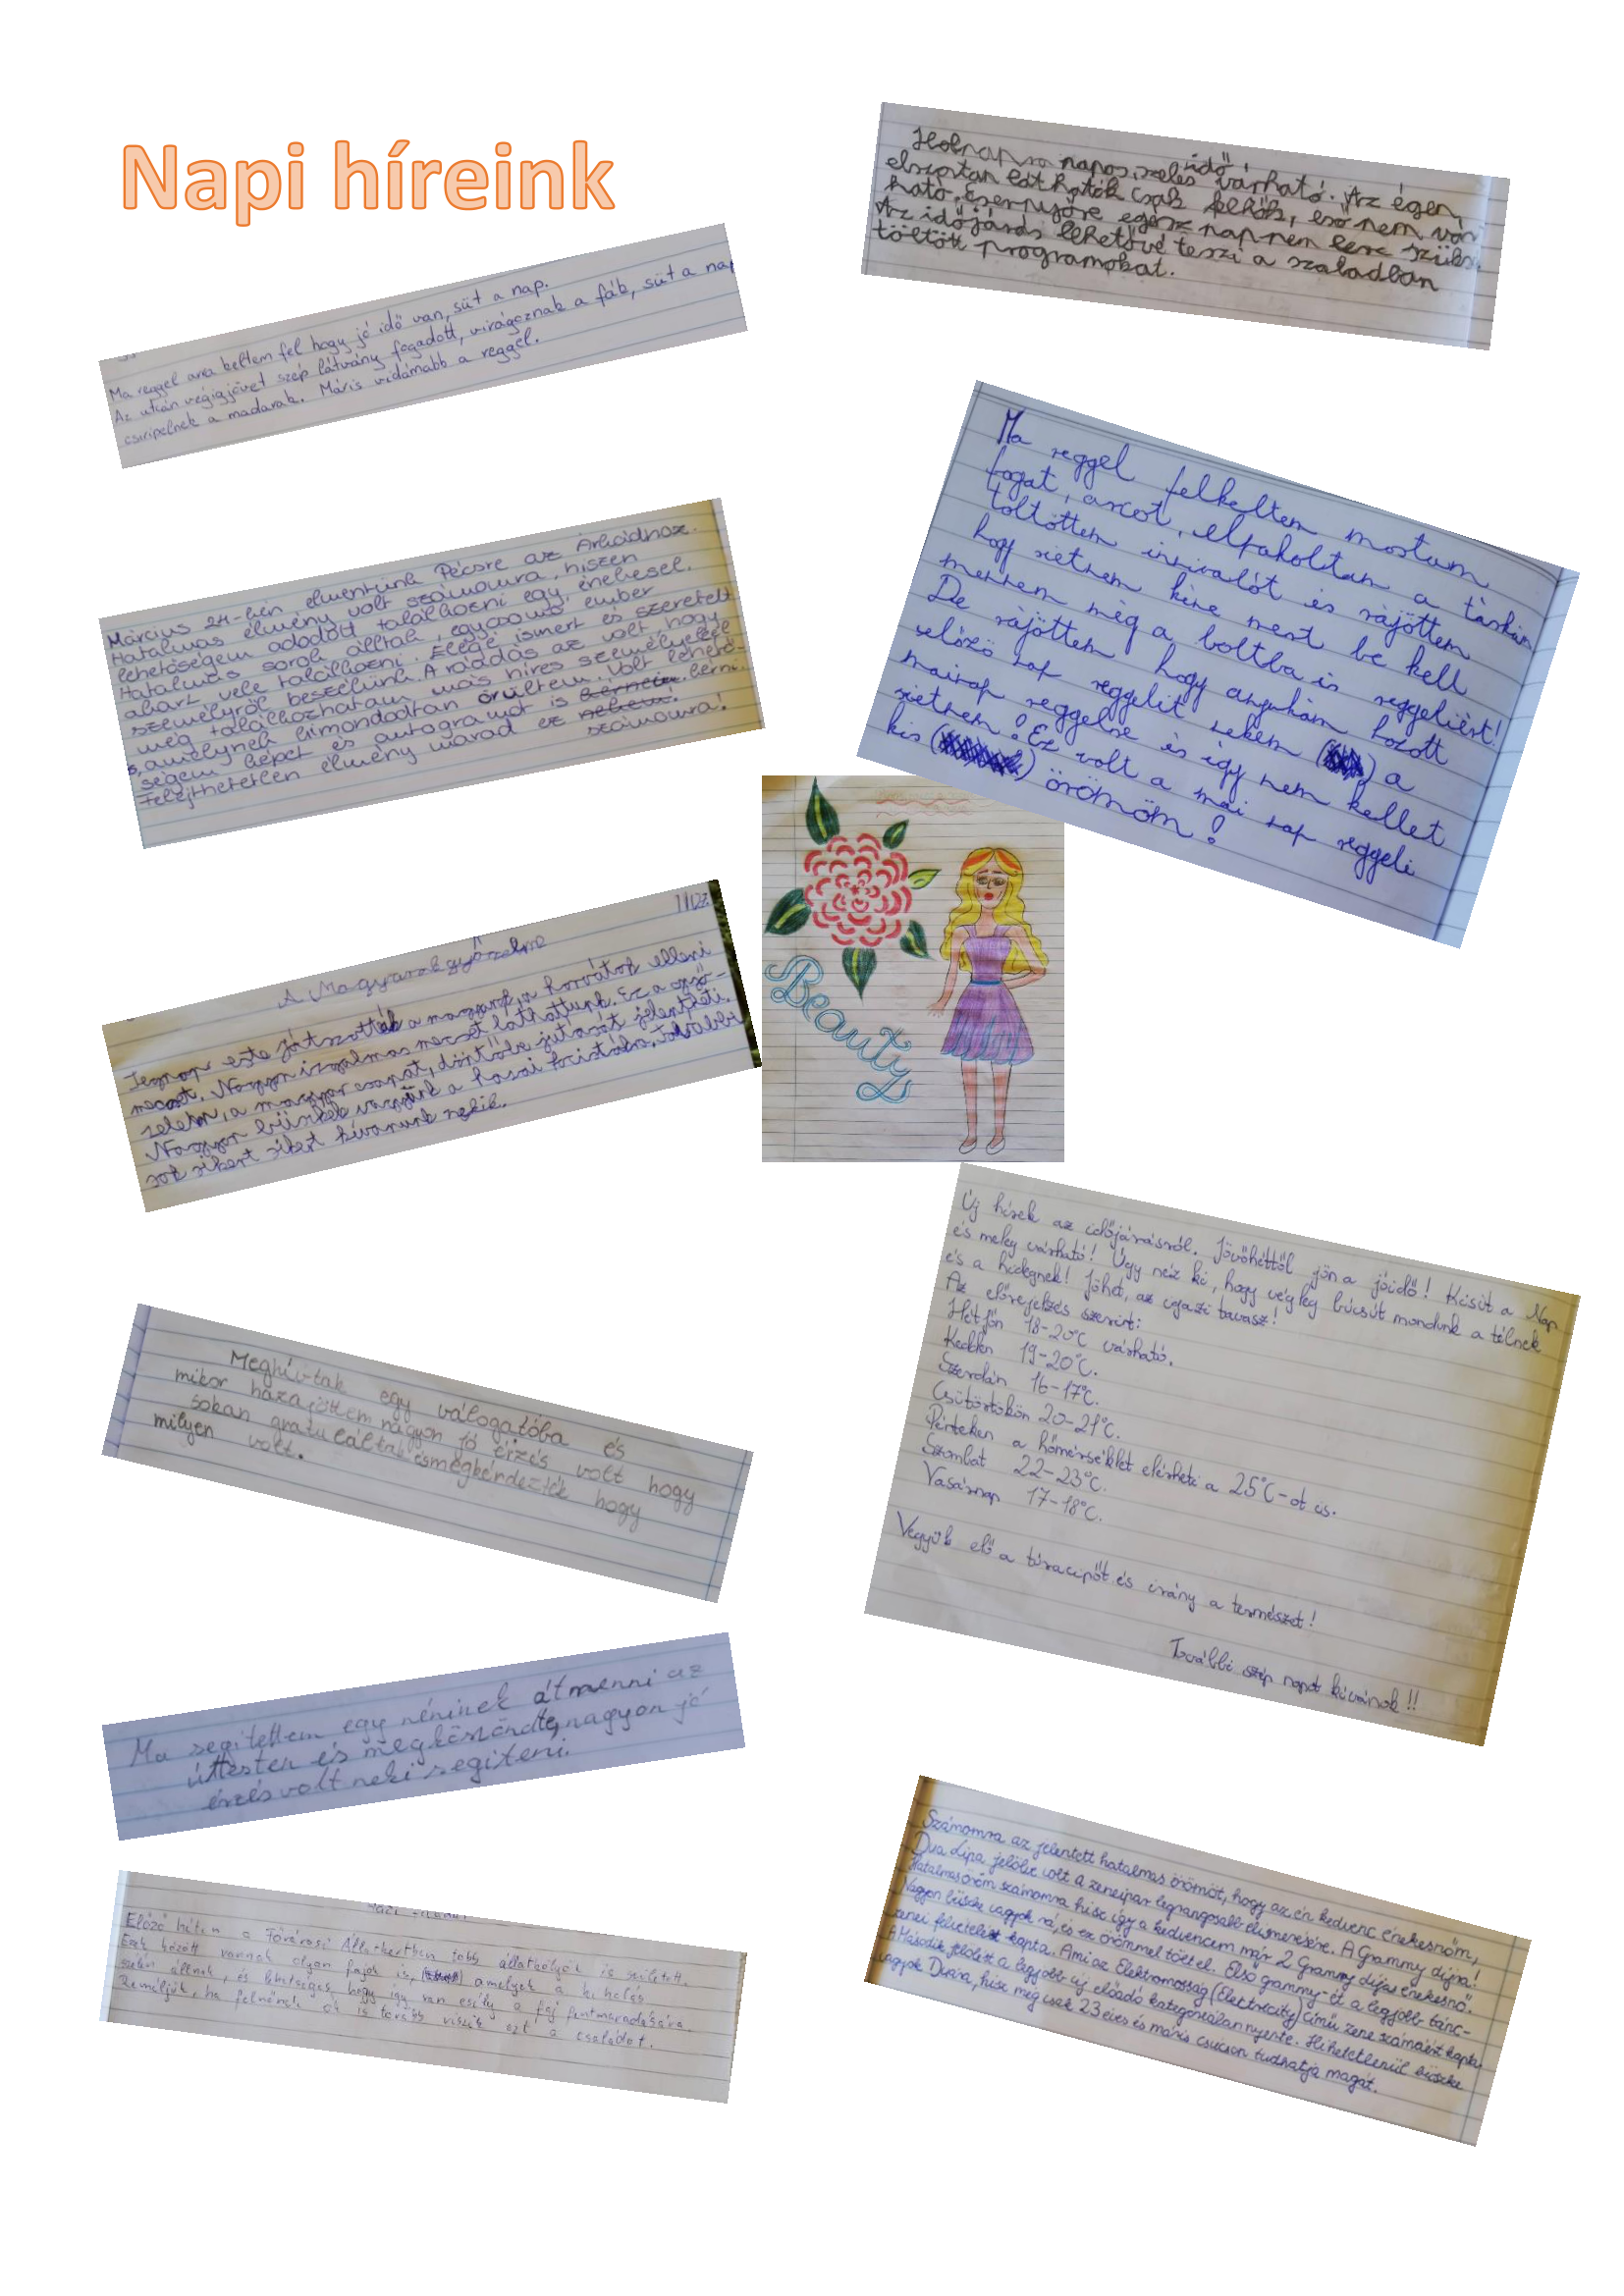 Napi híreink
Ma reggel arra keltem fel hogy jó idő van, süt a nap.
Az utcán végigjövet szép látvány fogadott, virágoznak a fák, süt a nap
csiripelnek a madarak. Máris vidámabb a reggel.
Március 24-én elmentünk Pécsre az Árkádhoz.
Hatalmas élmény volt számomra, hiszen
lehetőségem adódott találkozni egy énekesel.
Hatalmas sorok álltak, egycsomó ember
akart vele találkozni. Elége ismert és szeretett
személyről beszélünk. A ráadás az volt hogy
még találkozhatam más híres személyekkel
is, amelynek kimondodtan örültem. Volt lehető-
ségem képet és autogramot is kérni.
Felejthetetlen élmény marad ez
számomra!
A Magyarok győzelme
Tegnap este játszották a magyarok, a horvátok elleni
meccset. Nagyon izgalmas meccset láthattunk. Ez a győ-
zelem, a magyar csapat, döntőbe jutását jelentheti.
Nagyon büszkék vagyunk a hazai focistákra. További
sok sikert sikert kívánunk nekik.
Meghívtak egy válogatóba és
mikor hazajöttem nagyon jó érzés volt hogy
sokan gratuláltak és megkérdezték hogy
milyen volt.
Ma segítettem egy néninek átmenni az
úttesten és megköszönte, nagyon jó
érzés volt neki segíteni.
Előző héten a Fővárosi Állatkertben több állatkölyök is született.
Ezek között vannak olyan fajok is, amelyek a kihalás
szélén állnak, és lehetséges, hogy így van esély a faj fentmaradására.
Reméljük, ha felnőnek ők is tovább viszik ezt a családot.
Holnapra napos, szeles idő várható. Az égen,
elszórtan láthatók csak felhők, eső nem vár-
ható. Esernyőre egész nap nem lesz szüks
Az időjárás lehetővé teszi a szabadban
töltött programokat.
Ma reggel felkeltem mostam
fogat, arcot, elpakoltam a táskám
töltöttem innivalót és rájöttem
hogy sietnem kéne mert be kell
mennem még a boltba is reggeliért!
De rájöttem hogy anyukám hozott
előző nap reggelit nekem a
mainap reggelre és így nem kellet
sietnem! Ez volt a mai nap reggeli
kis örömöm!
Beauty
Új hírek az időjárásról. Jövőhéttől jön a jóidő! Kisüt a Nap
és meleg várható! Úgy néz ki, hogy végleg búcsút mondunk a télnek
és a hidegnek! Jöhet, az igazi tavasz!
Az előrejelzés szerint:
Hétfőn 18-20°C várható.
Kedden 19-20°C.
Szerdán 16-17°C.
Csütörtökön 20-21°C.
Pénteken a hőmérséklet elérheti a 25°C-ot is.
Szombat 22-23°C.
Vasárnap 17-18°C.
Vegyük elő a túracipőt és irány a természet!
További szép napot kívánok!!
Számomra az jelentett hatalmas örömöt, hogy az én kedvenc énekesnőm,
Dua Lipa jelölve volt a zeneipar legrangosabb elismerésére. A Grammy díjra!
Hatalmas öröm számomra hisz így a kedvencem már 2 Grammy díjas énekesnő.
Nagyon büszke vagyok rá, és ez örömmel töltel. Első grammy-ét a legjobb tánc-
zenei felvételért kapta. Ami az Elektromosság (Electricity) című zene számáért kapta.
A Második jelölést a legjobb új előadó kategóriában nyerte. Hihetetlenül büszke
vagyok Duára, hisz még csak 23 éves és máris csúcson tudhatja magát.